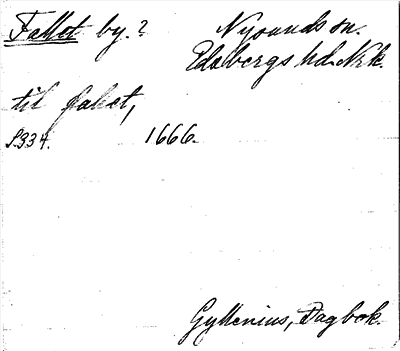 Fallet by.? Nysunds sn.
Edsbergs hd. Nrk.
til falet,
S.334. 1666.
Gyllenius, Dagbok.